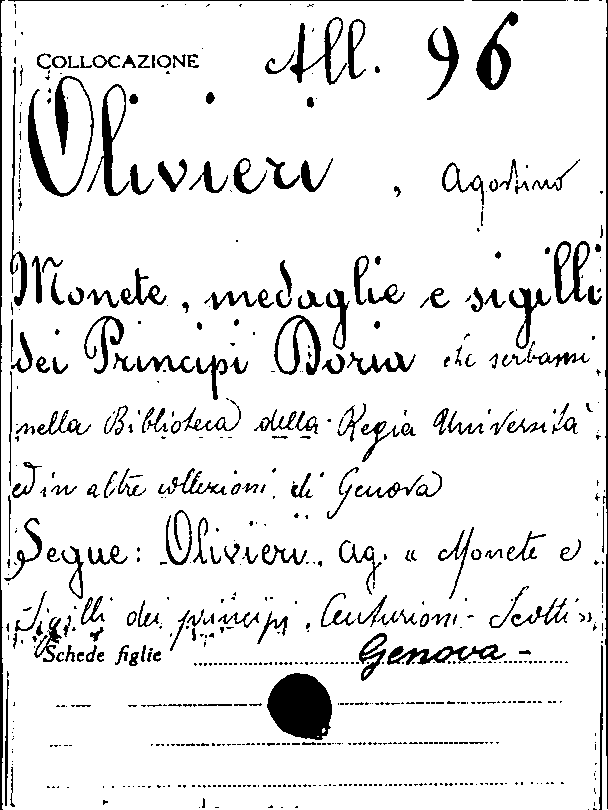 COLLOCAZIONE All. 96
Olivieri, Agostino
Monete, medaglie e sigilli
dei Principi Doria che serbansi
nella Biblioteca della Regia Università
ed in altre collezioni di Genova
Segue: Olivieri, Ag. « Monete e
Sigilli dei principi Centurioni - Scotti »,
Schede figlie Genova -